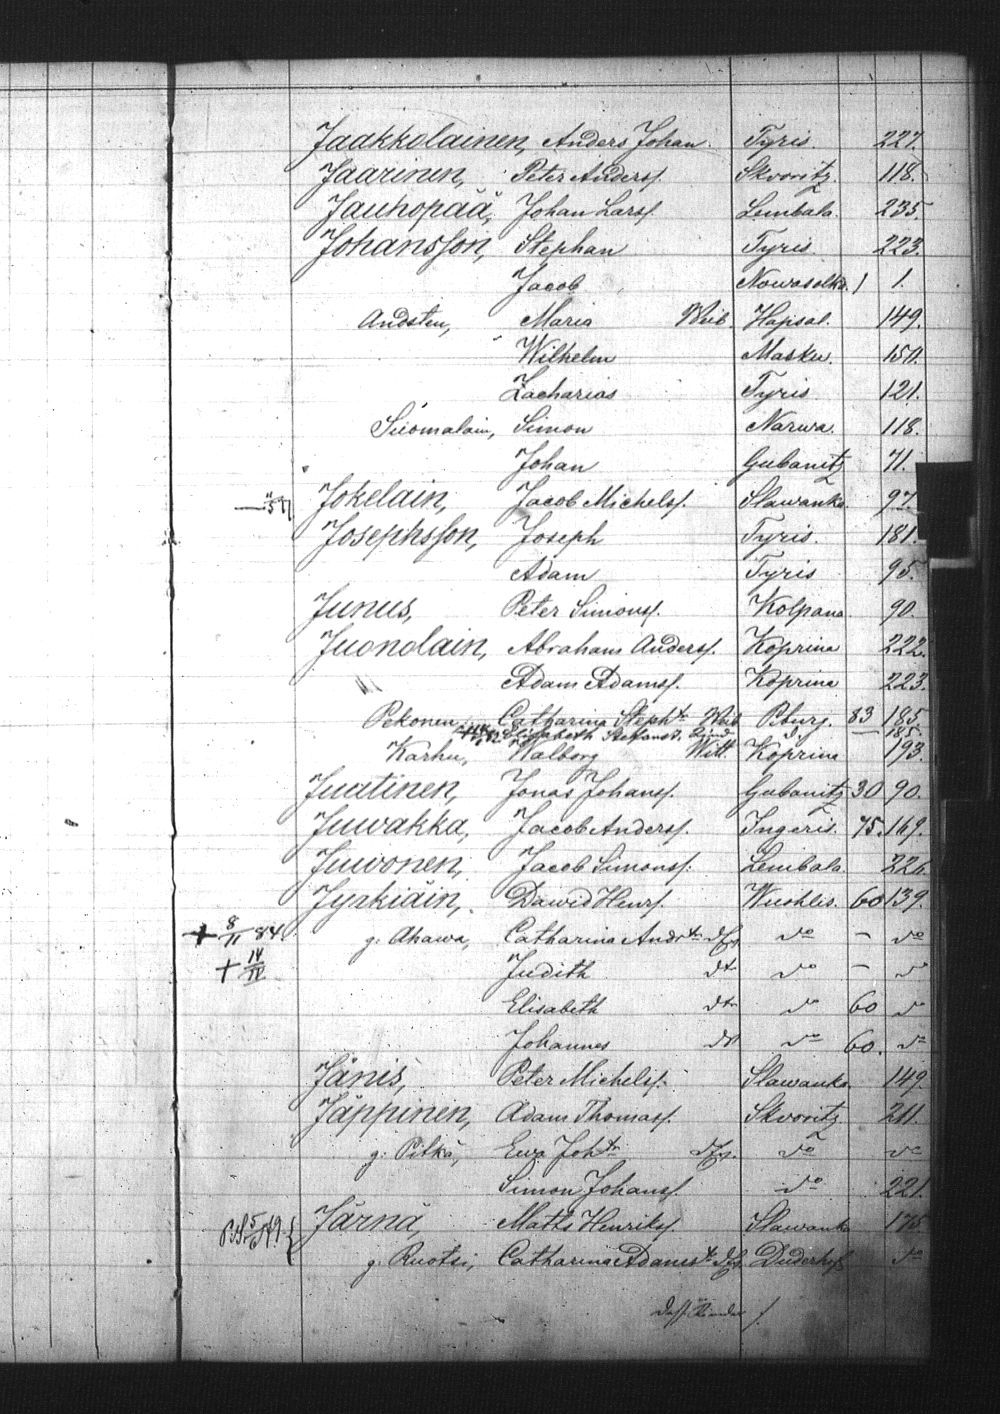 Jaakkolainen, Anders Johan. Tyris. 227.
Jaarinen, Peter Andersſ. Skvoritz. 118.
Jauhopää, Johan Larsſ. Lembala. 235.
Johansſon, Stephan Tyris. 223.
Jacob Nowasolka. 1 1.
Andsten, Maria Weib. Hapsal. 149.
Wilhelm Masku. 150.
Zacharias Tyris 121.
Suomalain, Simon Narwa. 118.
Johan Gubanitz 71.
Jokelain, Jacob Michelsſ. Slawanka 97.
Josephsſon, Joseph Tyris. 181.
Adam Tyris 95.
Junus, Peter Simonsſ. Kolpana. 90.
Juonolain, Abraham Andersſ. Koprina 222.
Adam Adamsſ. Koprina 223.
Pekonen, Catharina Stephtr Weib Pburg. 83 185.
Elisabeth Kind 185.
Karhu, Walborg Witt. Koprina 193.
Juutinen, Jonas Johansſ. Gubanitz 30 90.
Juwakka, Jacob Andersſ. Ingeris. 75. 169.
Juwonen, Jacob Simonsſ. Lembala. 226.
Jyrkiäin, Dawid Henrſ. Wuohlis. 60 139.
+ 8/11 84. g. Ahawa, Catharina Andrtr do – do
+ 14/11 Judith dtr do – do
Elisabeth dtr do 60 do
Johannes do 60. do
Jänis, Peter Michelsſ. Slawanka. 149.
Jäppinen, Adam Thomasſ. Skvoritz 211.
g. Pitkä, Ewa Johtr do do
Simon Johansſ. do 221.
Järnä, Matts Henriksſ. Slawanka 175
g. Ruotsi, Catharina Adamstr Duderhof do